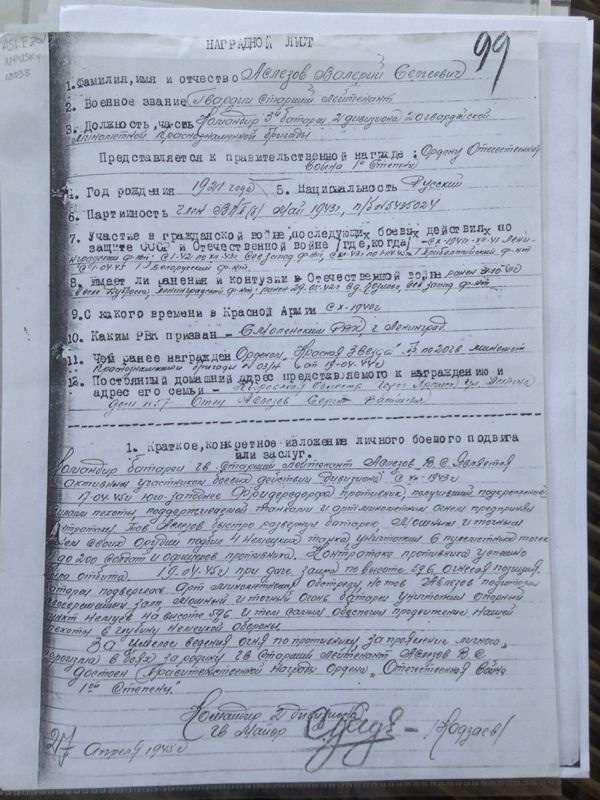 ASLEZOV
NEVSKY
18038
99
НАГРАДНОЙ ЛИСТ
1. Фамилия, имя и отчество Аслезов Валерий Сергеевич
2. Военное звание Гвардии старший лейтенант
3. Должность, часть Командир 5й батареи 2 дивизиона 20 гвардейской
минометной Краснознаменной бригады
Представляется к правительственной награде: Ордену Отечественная
война 1й степени
4. Год рождения 1921 года 5. Национальность Русский
6. Партийность член ВКП(б) май 1943г, п/б №5425024
7. Участие в гражданской войне, последующих боевых действиях по
защите СССР и Отечественной войне (где, когда)
1 Белорусский ф-нт.
8. Имеет ли ранения и контузии в Отечественной войне ранен
9. С какого времени в Красной Армии с X-1940г
10. Каким РВК призван - Смоленским РВК г. Ленинград
11. Чем ранее награжден Орденом "Красная Звезда" Пр. по 20 гв. миномет
Краснознаменной бригады № 03/н от 19.04.44г
12. Постоянный домашний адрес представляемого к награждению и
адрес его семьи - Кировская область ул. Ленина
дом №57 Отец Аслезов Сергей
1. Краткое, конкретное изложение личного боевого подвига
или заслуг.
Командир батареи гв. старший лейтенант Аслезов В.С. является
активным участником боевых действий дивизиона с
17.04.45г юго-западнее противник, получивший подкрепление
силами пехоты, поддерживаемой танками и арт-минометным огнем предпринял
контратаку. Тов. Аслезов быстро развернув батарею, мощным и точным
огнем своих орудий подбил 4 немецких танка уничтожил 6 пулеметных точек
и до 200 солдат и офицеров противника. Контратака противника успешно
была отбита. 19.04.45г при даче залпа по высоте 59,6 огневая позиция
батареи подверглась арт. минометному обстрелу, но тов. Аслезов
залп. Мощный и точный огонь батареи уничтожил опорный
пункт немцев на высоте 59,6 и тем самым обеспечил продвижение нашей
пехоты в глубину немецкой обороны.
За умелое ведение огня по противнику, за проявление личного
героизма в боях за родину гв. старший лейтенант Аслезов В.С.
достоин правительственной награды Ордена "Отечественная Война"
1ой степени.
Командир 2 дивизиона
гв. майор /Кодзаев/
27 апреля 1945г